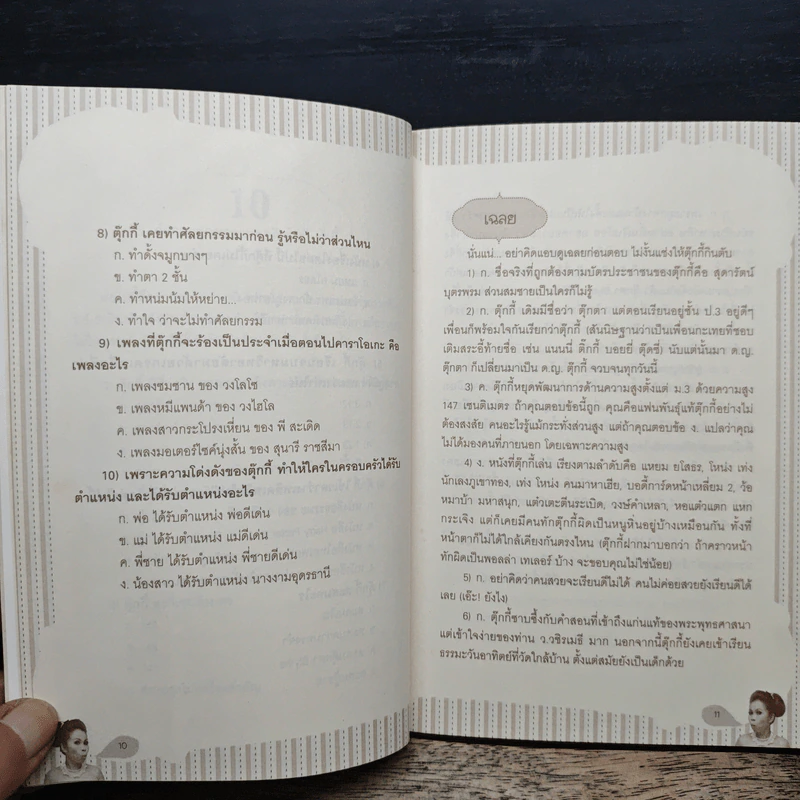 8) ตุ๊กกี้ เคยทำศัลยกรรมมาก่อน รู้หรือไม่ว่าส่วนไหน
ก. ทำดั้งจมูกบางๆ
ข. ทำตา 2 ชั้น
ค. ทำหน่มน้มให้หย่าย...
ง. ทำใจ ว่าจะไม่ทำศัลยกรรม
9) เพลงที่ตุ๊กกี้จะร้องเป็นประจำเมื่อตอนไปคาราโอเกะ คือ
เพลงอะไร
ก. เพลงซมซาน ของ วงโลโซ
ข. เพลงหมีแพนด้า ของ วงไฮโล
ค. เพลงสาวกระโปรงเหี่ยน ของ พี สะเดิด
ง. เพลงมอเตอร์ไซค์นุ่งสั้น ของ สุนารี ราชสีมา
10) เพราะความโด่งดังของตุ๊กกี้ ทำให้ใครในครอบครัวได้รับ
ตำแหน่ง และได้รับตำแหน่งอะไร
ก. พ่อ ได้รับตำแหน่ง พ่อดีเด่น
ข. แม่ ได้รับตำแหน่ง แม่ดีเด่น
ค. พี่ชาย ได้รับตำแหน่ง พี่ชายดีเด่น
ง. น้องสาว ได้รับตำแหน่ง นางงามอุดรธานี
10
เฉลย
นั่นแน่... อย่าคิดแอบดูเฉลยก่อนตอบ ไม่งั้นแช่งให้ตุ๊กกี้กินตับ
1) ก. ชื่อจริงที่ถูกต้องตามบัตรประชาชนของตุ๊กกี้คือ สุดารัตน์
บุตรพรม ส่วนสมชายเป็นใครก็ไม่รู้
2) ก. ตุ๊กกี้ เดิมมีชื่อว่า ตุ๊กตา แต่ตอนเรียนอยู่ชั้น ป.3 อยู่ดีๆ
เพื่อนก็พร้อมใจกันเรียกว่าตุ๊กกี้ (สันนิษฐานว่าเป็นเพื่อนกะเทยที่ชอบ
เติมสระอี้ท้ายชื่อ เช่น แนนนี่ ติ๊กกี้ บอยยี่ ตุ๊ดซี่) นับแต่นั้นมา ด.ญ.
ตุ๊กตา ก็เปลี่ยนมาเป็น ด.ญ. ตุ๊กกี้ จวบจนทุกวันนี้
3) ค. ตุ๊กกี้หยุดพัฒนาการด้านความสูงตั้งแต่ ม.3 ด้วยความสูง
147 เซนติเมตร ถ้าคุณตอบข้อนี้ถูก คุณคือแฟนพันธุ์แท้ตุ๊กกี้อย่างไม่
ต้องสงสัย คนอะไรรู้แม้กระทั่งส่วนสูง แต่ถ้าคุณตอบข้อ ง. แปลว่าคุณ
ไม่ได้มองคนที่ภายนอก โดยเฉพาะความสูง
4) ง. หนังที่ตุ๊กกี้เล่น เรียงตามลำดับคือ แหยม ยโสธร, โหน่ง เท่ง
นักเลงภูเขาทอง, เท่ง โหน่ง คนมาหาเฮีย, บอดี้การ์ดหน้าเหลี่ยม 2, ว้อ
หมาบ้า มหาสนุก, แต๋วเตะตีนระเบิด, วงษ์คำเหลา, หอแต๋วแตก แหก
กระเจิง แต่ก็เคยมีคนทักตุ๊กกี้ผิดเป็นหนูหิ่นอยู่บ้างเหมือนกัน ทั้งที่
หน้าตาก็ไม่ได้ใกล้เคียงกันตรงไหน (ตุ๊กกี้ฝากมาบอกว่า ถ้าคราวหน้า
ทักผิดเป็นพอลล่า เทเลอร์ บ้าง จะขอบคุณไม่ใช่น้อย)
5) ก. อย่าคิดว่าคนสวยจะเรียนดีไม่ได้ คนไม่ค่อยสวยยังเรียนดีได้
เลย (เอ๊ะ! ยังไง)
6) ก. ตุ๊กกี้ซาบซึ้งกับคำสอนที่เข้าถึงแก่นแท้ของพระพุทธศาสนา
แต่เข้าใจง่ายของท่าน ว.วชิรเมธี มาก นอกจากนี้ตุ๊กกี้ยังเคยเข้าเรียน
ธรรมะวันอาทิตย์ที่วัดใกล้บ้าน ตั้งแต่สมัยยังเป็นเด็กด้วย
11